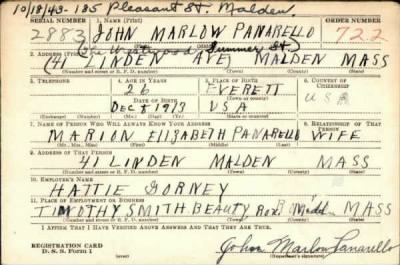 10/18/43-185 Pleasant St. Malden
SERIAL NUMBER 1. NAME (Print) ORDER NUMBER
2883 JOHN MARLOW PANARELLO 722
2. ADDRESS (Print)
(41 LINDEN AVE) MALDEN MASS
3. TELEPHONE 4. AGE IN YEARS 5. PLACE OF BIRTH 6. COUNTRY OF CITIZENSHIP
26 EVERETT USA
DATE OF BIRTH
1913 USA
7. NAME OF PERSON WHO WILL ALWAYS KNOW YOUR ADDRESS 8. RELATIONSHIP OF THAT PERSON
MARION ELIZABETH PANARELLO WIFE
(Mr., Mrs., Miss) (First) (Middle) (Last)
9. ADDRESS OF THAT PERSON
41 LINDEN MALDEN MASS
(Number and street or R. F. D. number) (Town) (County) (State)
10. EMPLOYER'S NAME
HATTIE DORNEY
11. PLACE OF EMPLOYMENT OR BUSINESS
TIMOTHY SMITH BEAUTY MASS
(Number and street or R. F. D. number) (Town) (County) (State)
I AFFIRM THAT I HAVE VERIFIED ABOVE ANSWERS AND THAT THEY ARE TRUE.
REGISTRATION CARD
D. S. S. Form 1 (over) John Marlow Panarello
(Registrant's signature)